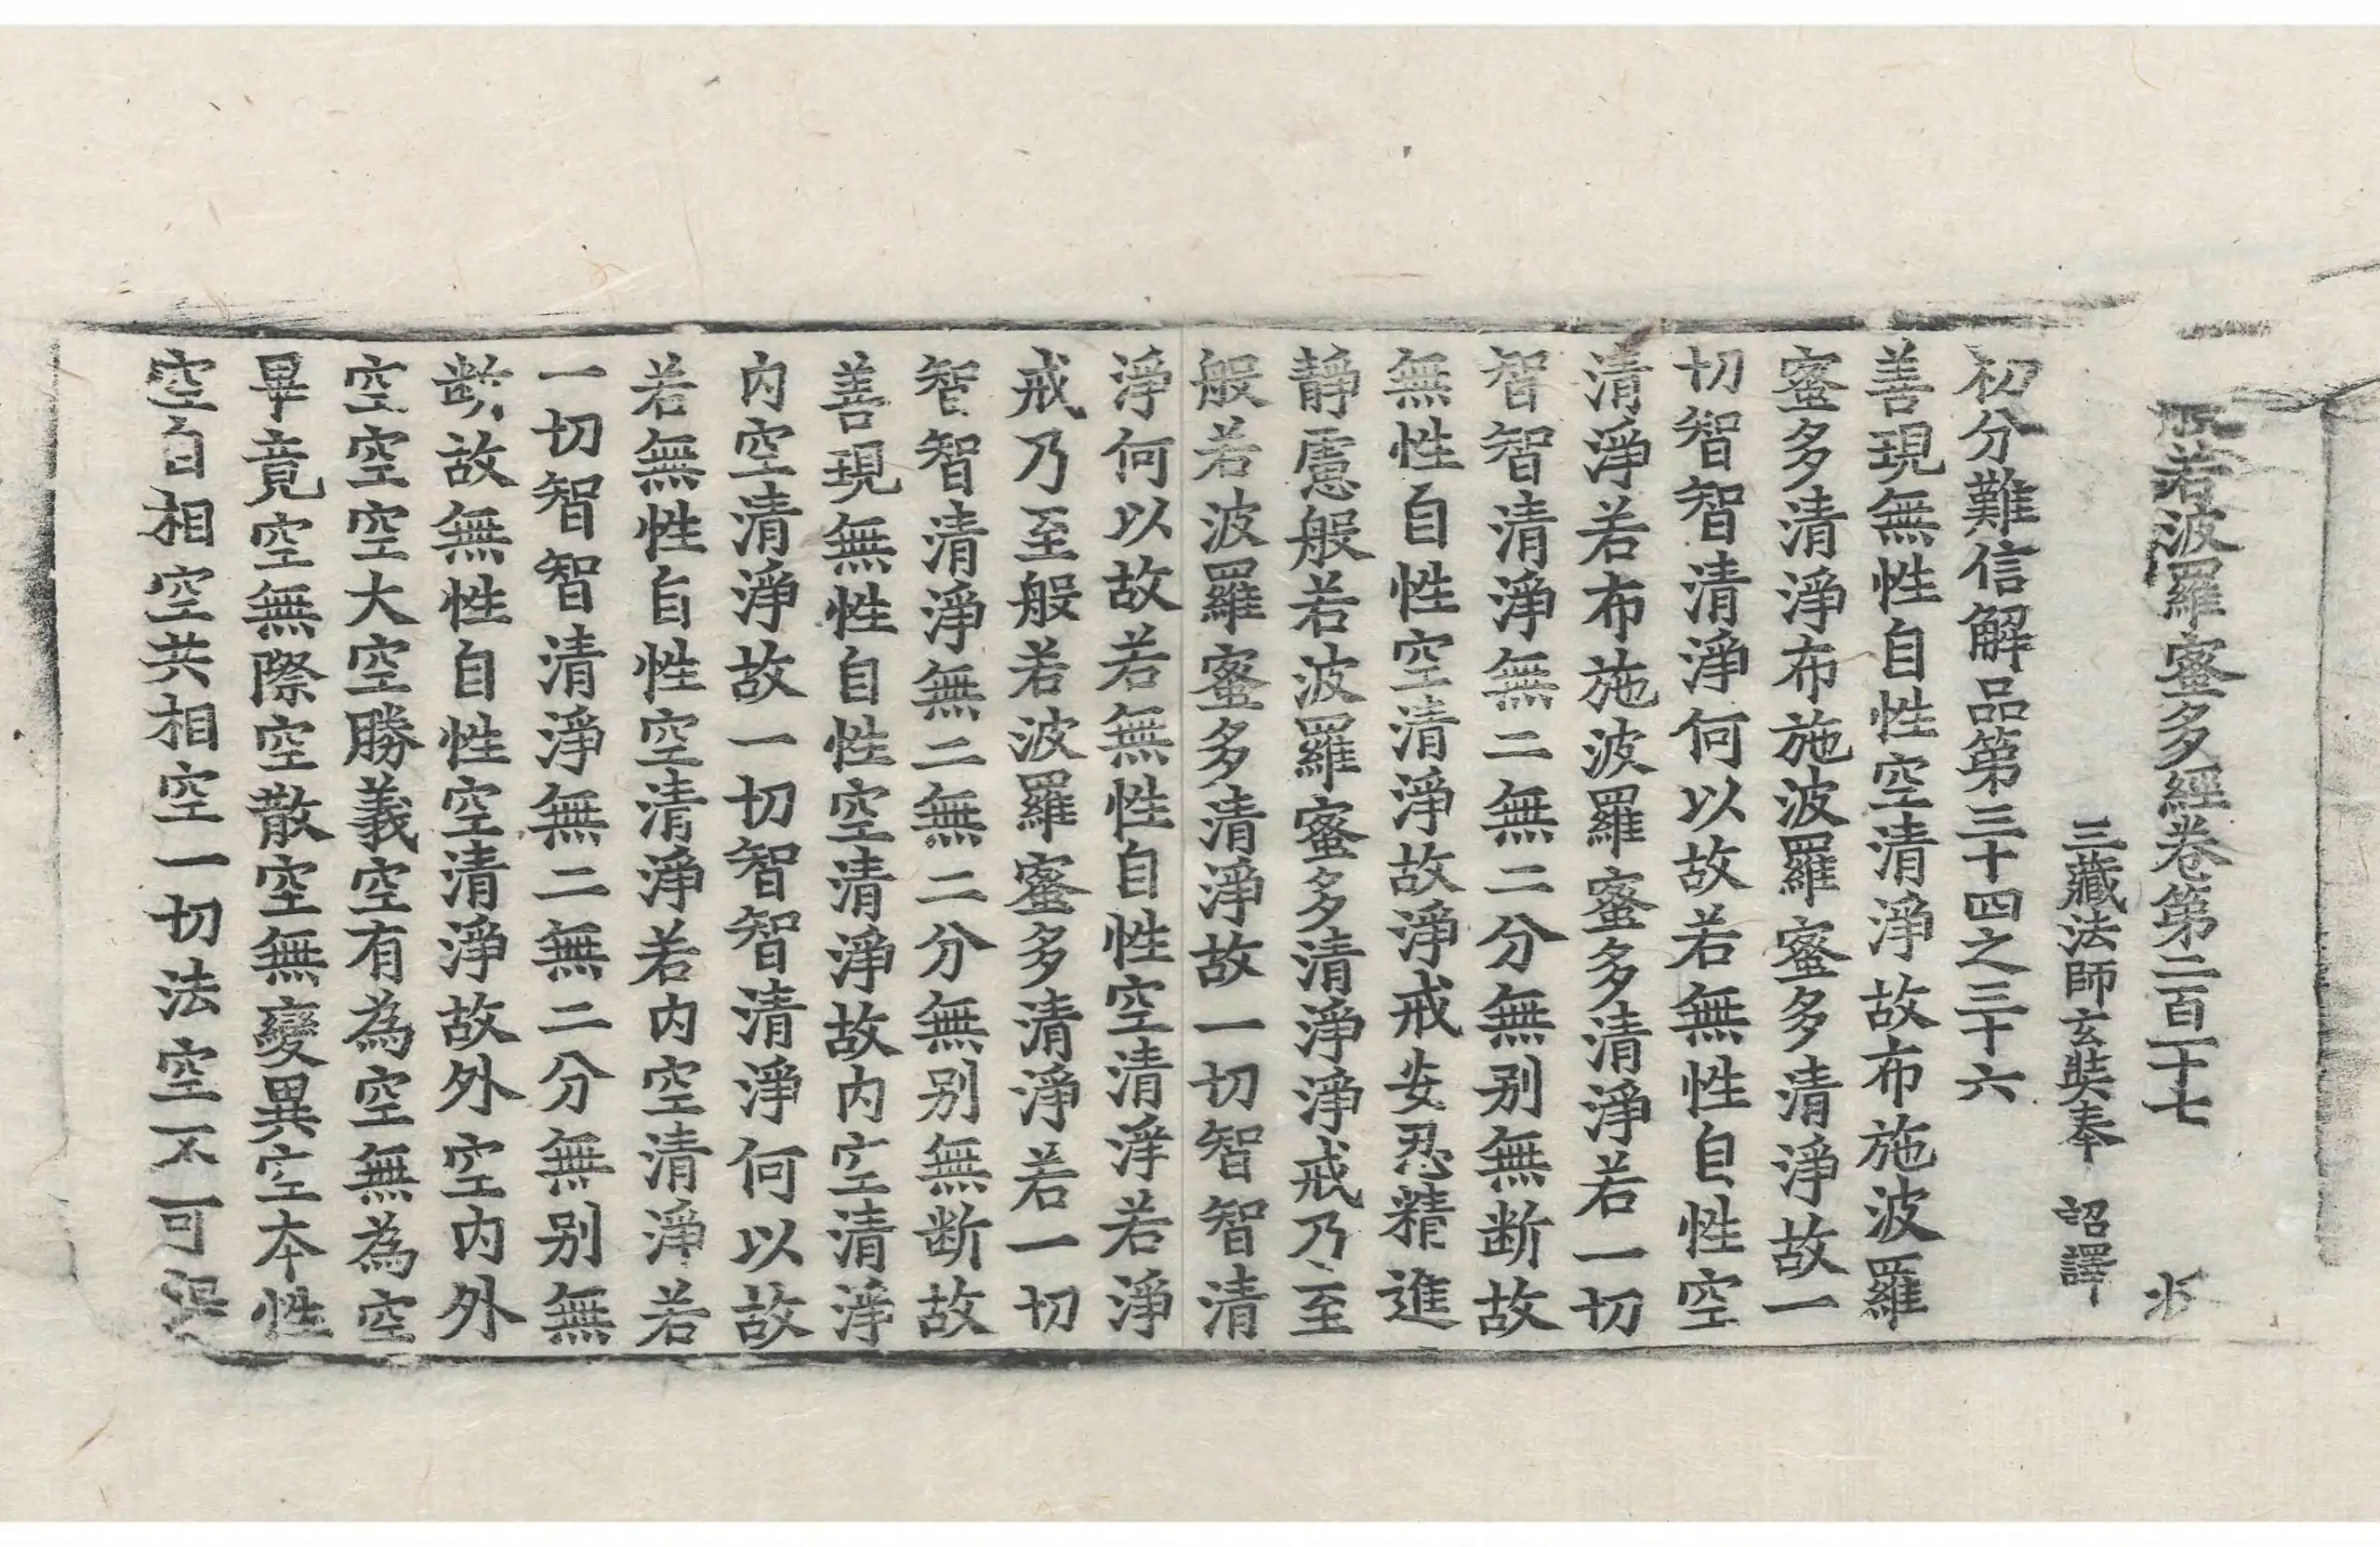 般若波羅蜜多經卷第二百一十七
三藏法師玄奘奉 詔譯
初分難信解品第三十四之三十六
善現無性自性空清淨故布施波羅
蜜多清淨布施波羅蜜多清淨故一
切智智清淨何以故若無性自性空
清淨若布施波羅蜜多清淨若一切
智智清淨無二無二分無别無断故
無性自性空清淨故淨戒安忍精進
靜慮般若波羅蜜多清淨淨戒乃至
般若波羅蜜多清淨故一切智智清
淨何以故若無性自性空清淨若淨
戒乃至般若波羅蜜多清淨若一切
智智清淨無二無二分無别無断故
善現無性自性空清淨故内空清淨
内空清淨故一切智智清淨何以故
若無性自性空清淨若内空清淨若
一切智智清淨無二無二分無别無
断故無性自性空清淨故外空内外
空空空大空勝義空有為空無為空
畢竟空無際空散空無變異空本性
空自相空共相空一切法空不可得